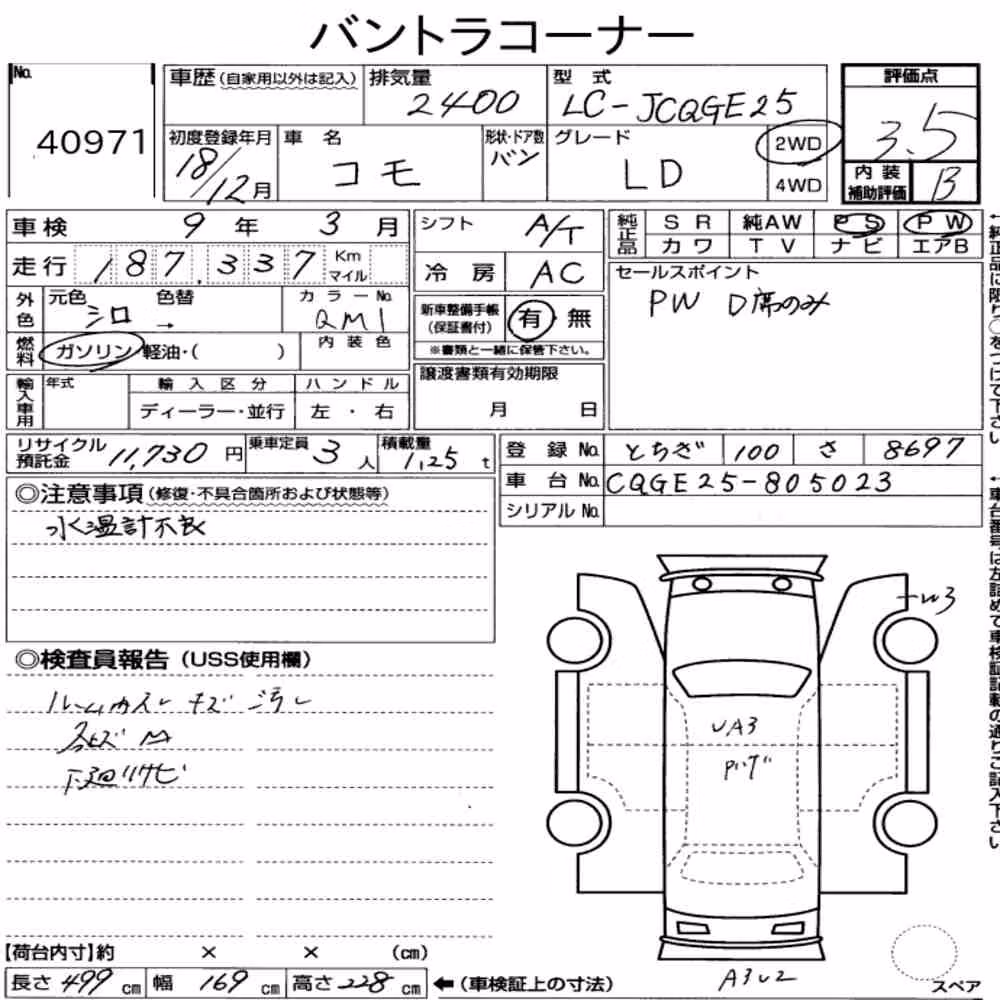 バントラコーナー
No. 40971
車歴 (自家用以外は記入)
排気量 2400
型式 LC-JCQGE25
評価点 3.5
初度登録年月 18/12月
車名 コモ
形状・ドア数 バン
グレード LD
2WD
4WD
内装補助評価 B
車検 9年 3月
シフト A/T
純正品 SR 純AW PS PW
カワ TV ナビ エアB
走行 187,337 Km マイル
冷房 AC
セールスポイント
PW D席のみ
外色 元色 シロ 色替 → カラーNo. QM1
新車整備手帳 (保証書付) 有・無
※書類と一緒に保管下さい。
燃料 ガソリン・軽油・( )
内装色
譲渡書類有効期限
月 日
輸入車用 年式 輸入区分 ハンドル
ディーラー・並行 左・右
リサイクル預託金 11,730円
乗車定員 3人
積載量 1,25t
登録No. とちぎ 100 さ 8697
車台No. CQGE25-805023
シリアルNo.
◎注意事項 (修復・不具合箇所および状態等)
水温計不良
◎検査員報告 (USS使用欄)
ルームカスレ キズ 汚レ
下廻リサビ
W3
UA3
A3U2
【荷台内寸】約 × × (cm)
長さ 499 cm 幅 169 cm 高さ 228 cm ←(車検証上の寸法)
スペア
←純正品に限り○をつけて下さい
←車台番号は左詰めで車検証記載の通りご記入下さい